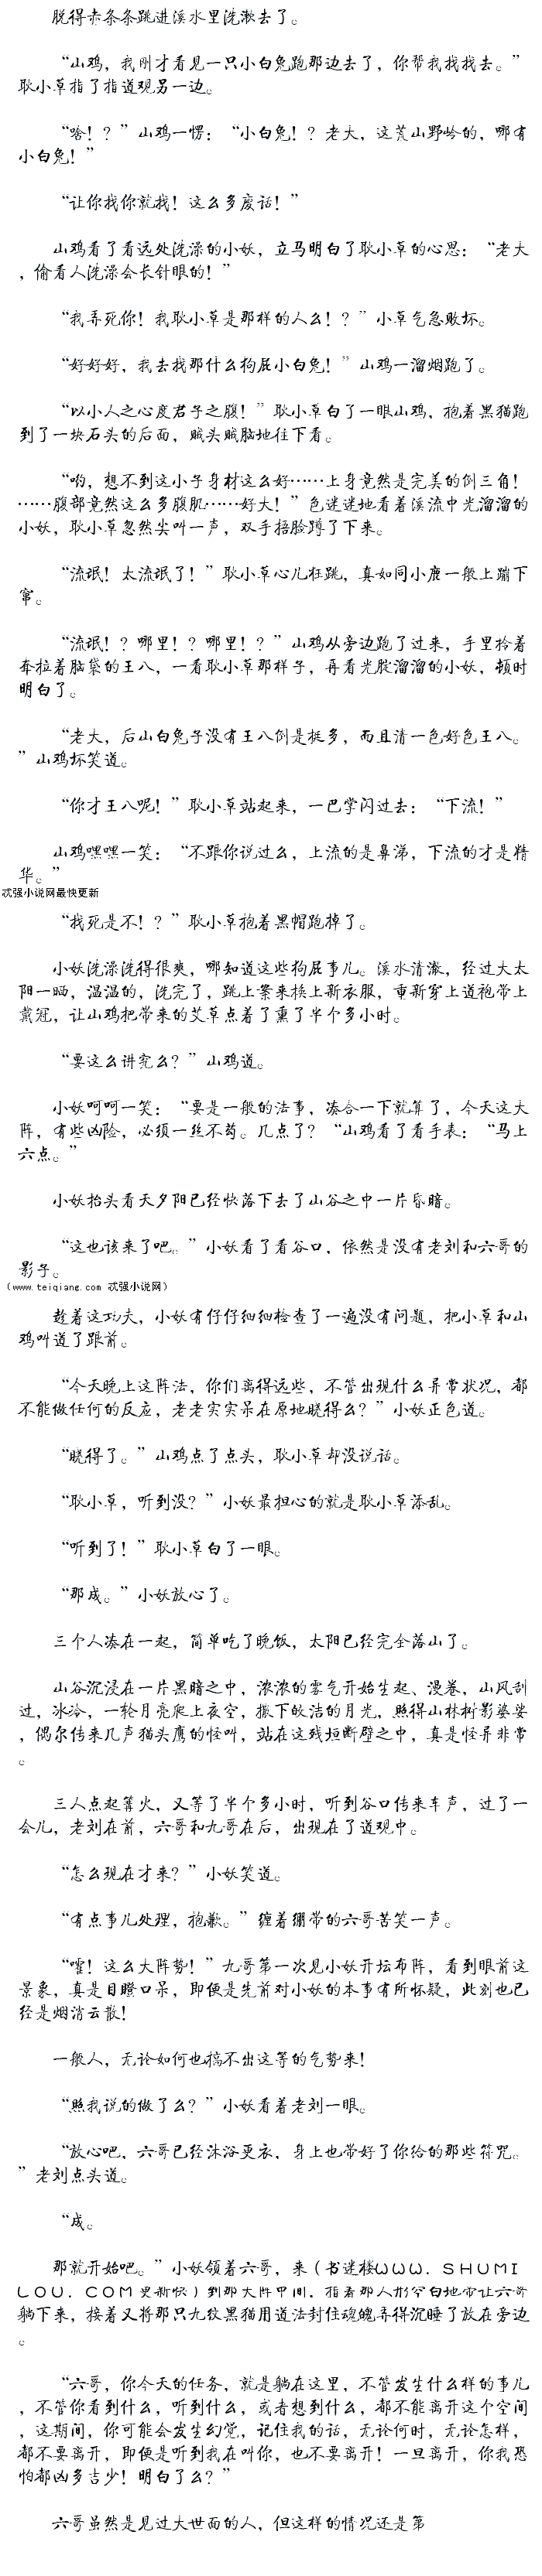 脱得赤条条跳进溪水里洗漱去了。
“山鸡，我刚才看见一只小白兔跑那边去了，你帮我找找去。”
耿小草指了指道观另一边。
“啥！？”山鸡一愣：“小白兔！？老大，这荒山野岭的，哪有
小白兔！”
“让你找你就找！这么多废话！”
山鸡看了看远处洗澡的小妖，立马明白了耿小草的心思：“老大
，偷看人洗澡会长针眼的！”
“我弄死你！我耿小草是那样的人么！？”小草气急败坏。
“好好好，我去找那什么狗屁小白兔！”山鸡一溜烟跑了。
“以小人之心度君子之腹！”耿小草白了一眼山鸡，抱着黑猫跑
到了一块石头的后面，贼头贼脑地往下看。
“哟，想不到这小子身材这么好……上身竟然是完美的倒三角！
……腹部竟然这么多腹肌……好大！”色迷迷地看着溪流中光溜溜的
小妖，耿小草忽然尖叫一声，双手捂脸蹲了下来。
“流氓！太流氓了！”耿小草心儿狂跳，真如同小鹿一般上蹦下
窜。
“流氓！？哪里！？哪里！？”山鸡从旁边跑了过来，手里拎着
奔拉着脑袋的王八，一看耿小草那样子，再看光腚溜溜的小妖，顿时
明白了。
“老大，后山白兔子没有王八倒是挺多，而且清一色好色王八。
”山鸡坏笑道。
“你才王八呢！”耿小草站起来，一巴掌闪过去：“下流！”
山鸡嘿嘿一笑：“不跟你说过么，上流的是鼻涕，下流的才是精
华。”
忒强小说网最快更新
“找死是不！？”耿小草抱着黑帽跑掉了。
小妖洗澡洗得很爽，哪知道这些狗屁事儿。溪水清澈，经过大太
阳一晒，温温的，洗完了，跳上案来换上新衣服，重新穿上道袍带上
戴冠，让山鸡把带来的艾草点着了熏了半个多小时。
“要这么讲究么？”山鸡道。
小妖呵呵一笑：“要是一般的法事，凑合一下就算了，今天这大
阵，有些凶险，必须一丝不苟。几点了？“山鸡看了看手表：“马上
六点。”
小妖抬头看天夕阳已经快落下去了山谷之中一片昏暗。
“这也该来了吧。”小妖看了看谷口，依然是没有老刘和六哥的
影子。
（www.teiqiang.com 忒强小说网）
趁着这功夫，小妖有仔仔细细检查了一遍没有问题，把小草和山
鸡叫道了跟前。
“今天晚上这阵法，你们离得远些，不管出现什么异常状况，都
不能做任何的反应，老老实实呆在原地晓得么？”小妖正色道。
“晓得了。”山鸡点了点头，耿小草却没说话。
“耿小草，听到没？”小妖最担心的就是耿小草添乱。
“听到了！”耿小草白了一眼。
“那成。”小妖放心了。
三个人凑在一起，简单吃了晚饭，太阳已经完全落山了。
山谷沉浸在一片黑暗之中，浓浓的雾气开始生起、漫卷，山风刮
过，冰冷，一轮月亮爬上夜空，撒下皎洁的月光，照得山林树影婆娑
，偶尔传来几声猫头鹰的怪叫，站在这残垣断壁之中，真是怪异非常
。
三人点起篝火，又等了半个多小时，听到谷口传来车声，过了一
会儿，老刘在前，六哥和九哥在后，出现在了道观中。
“怎么现在才来？”小妖笑道。
“有点事儿处理，抱歉。”缠着绷带的六哥苦笑一声。
“嚯！这么大阵势！”九哥第一次见小妖开坛布阵，看到眼前这
景象，真是目瞪口呆，即便是先前对小妖的本事有所怀疑，此刻也已
经是烟消云散！
一般人，无论如何也搞不出这等的气势来！
“照我说的做了么？”小妖看着老刘一眼。
“放心吧，六哥已经沐浴更衣，身上也带好了你给的那些符咒。
”老刘点头道。
“成。
那就开始吧。”小妖领着六哥，来（书迷楼ＷＷＷ．ＳＨＵＭＩ
ＬＯＵ．ＣＯＭ更新快）到那大阵中间，指着那人形空白地带让六哥
躺下来，接着又将那只九纹黑猫用道法封住魂魄弄得沉睡了放在旁边
。
“六哥，你今天的任务，就是躺在这里，不管发生什么样的事儿
，不管你看到什么，听到什么，或者想到什么，都不能离开这个空间
，这期间，你可能会发生幻觉，记住我的话，无论何时，无论怎样，
都不要离开，即便是听到我在叫你，也不要离开！一旦离开，你我恐
怕都凶多吉少！明白了么？”
六哥虽然是见过大世面的人，但这样的情况还是第